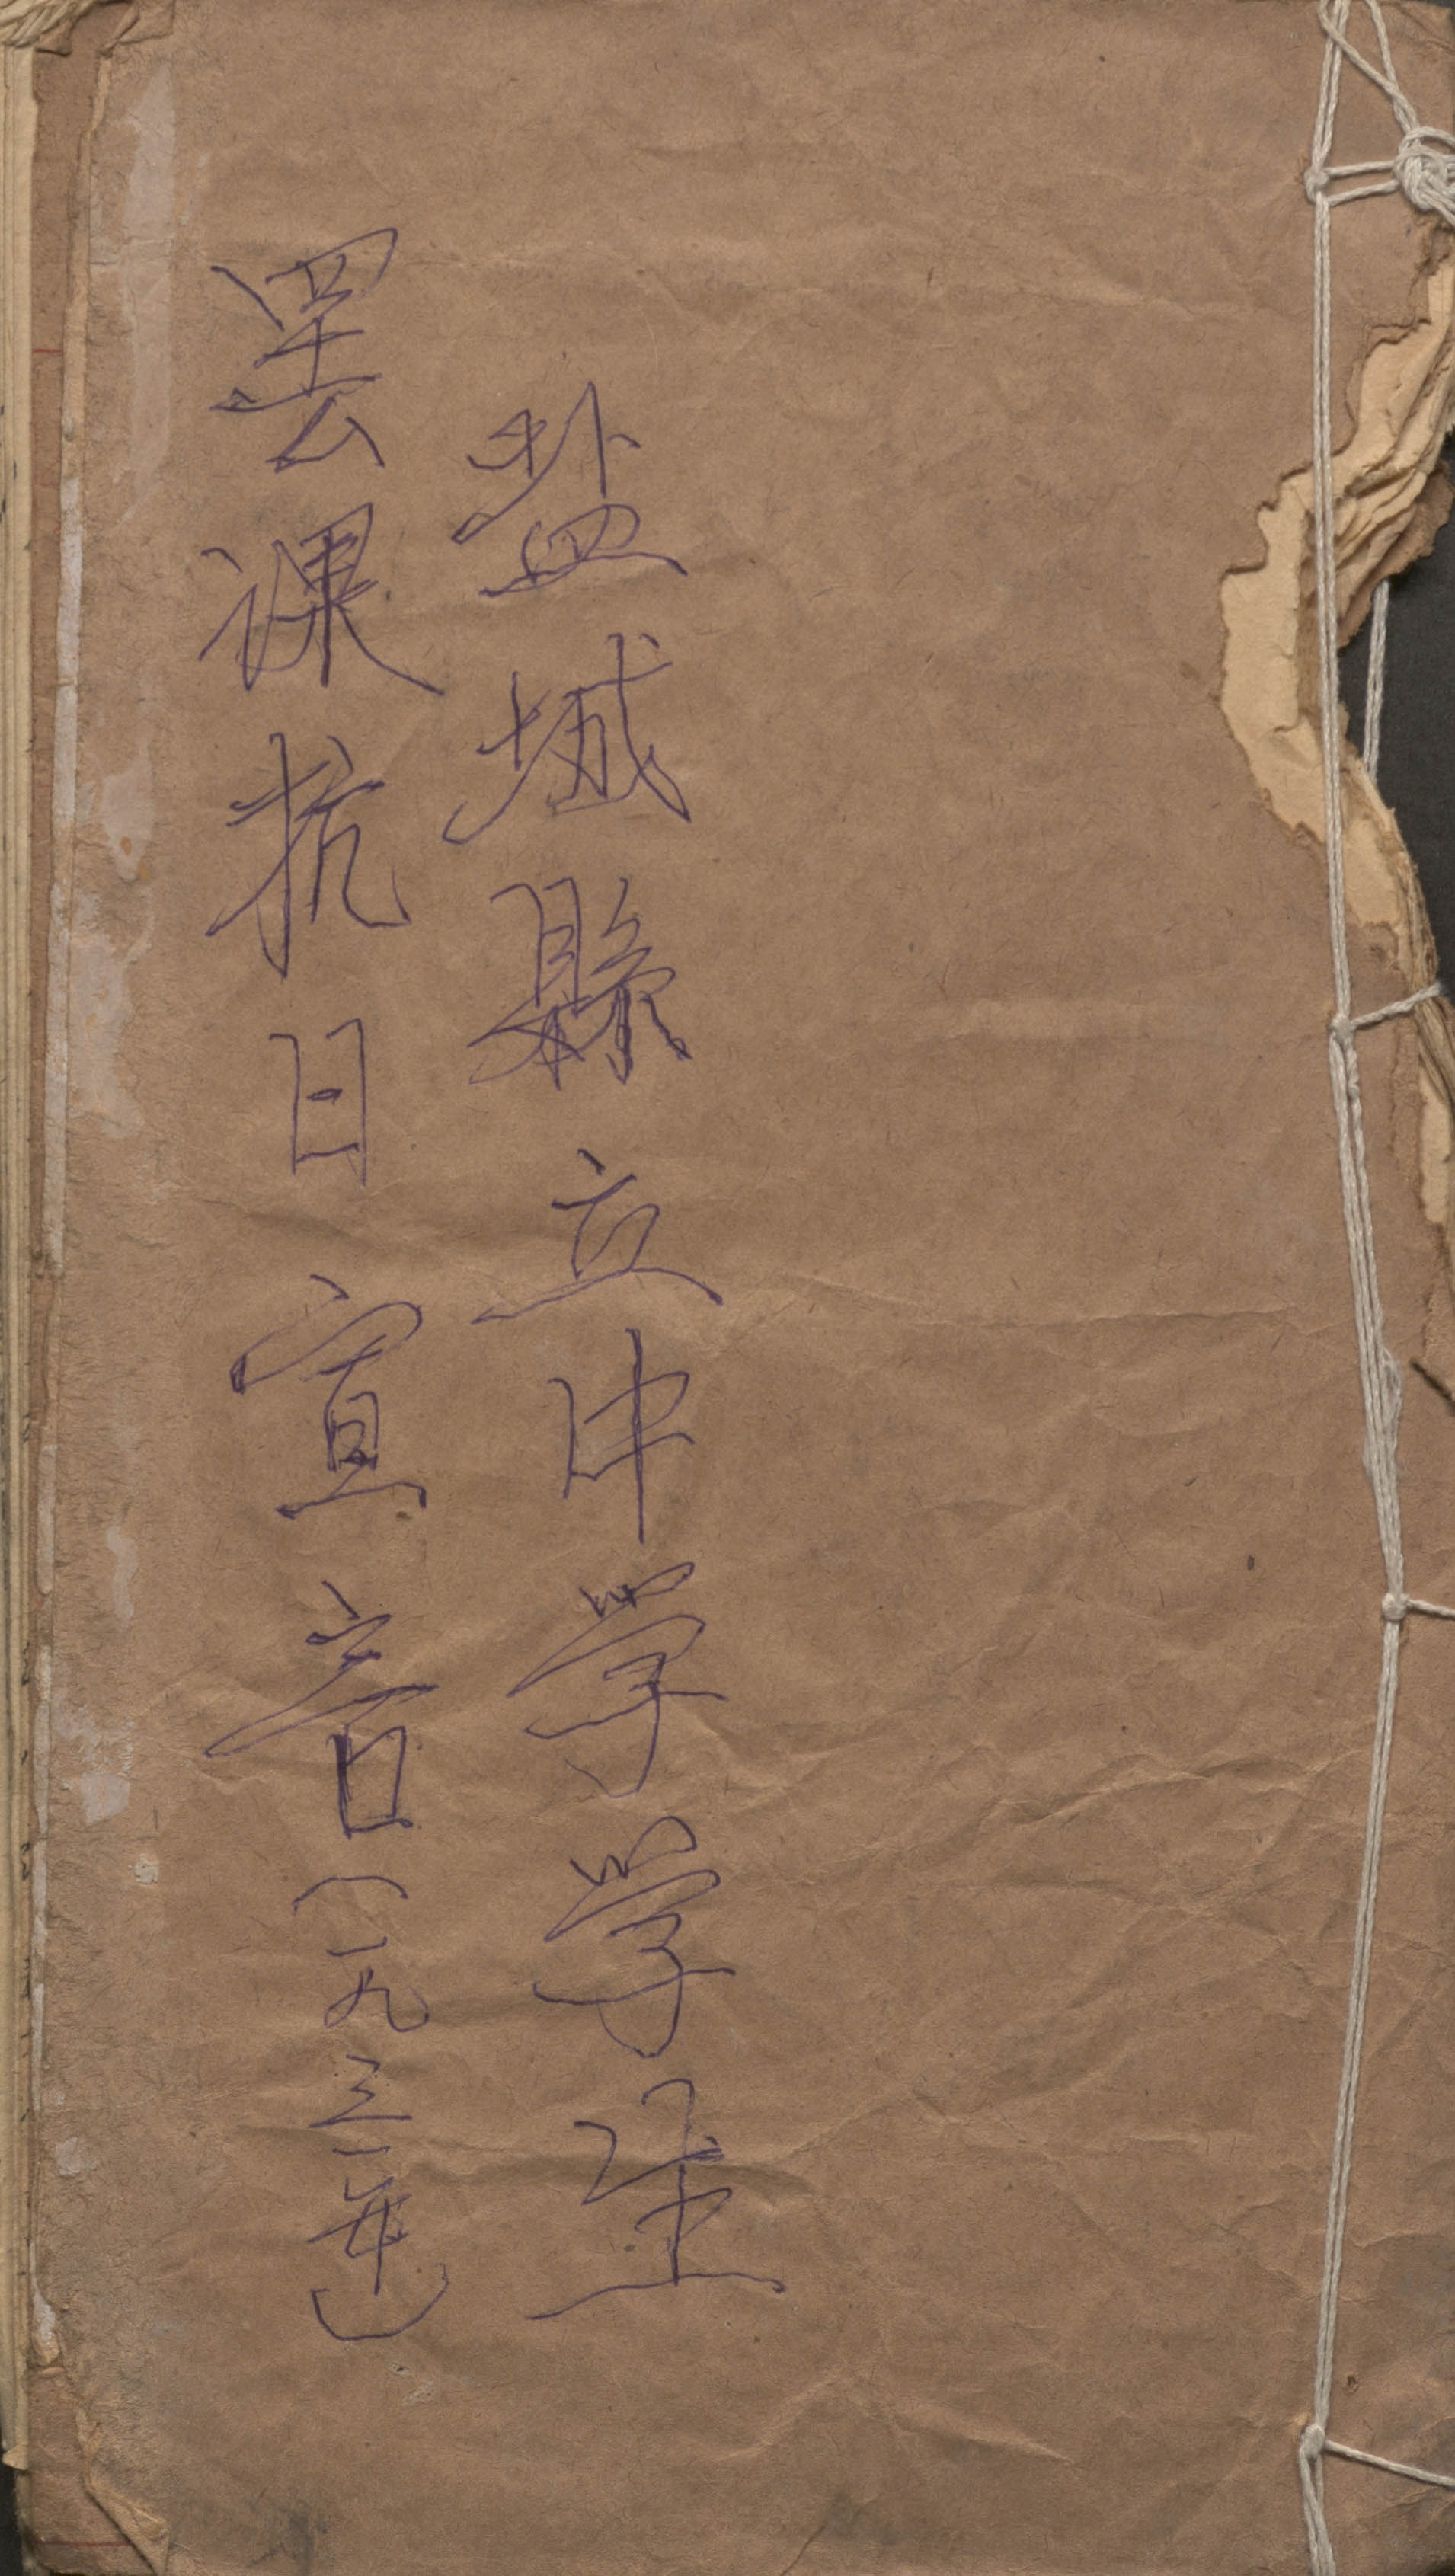 盐城縣立中学学生
罢课抗日宣言(一九三一年)